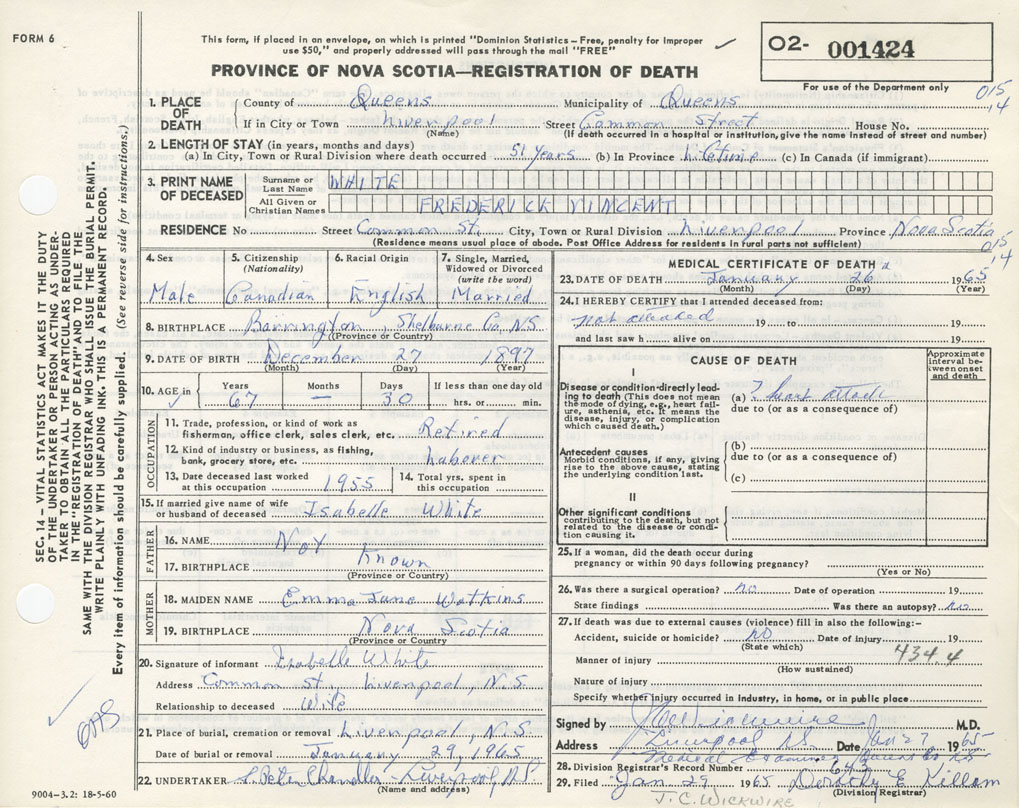 FORM 6
This form, if placed in an envelope, on which is printed "Dominion Statistics – Free, penalty for improper
use $50," and properly addressed will pass through the mail "FREE"
02- 001424
PROVINCE OF NOVA SCOTIA—REGISTRATION OF DEATH
For use of the Department only
015
14
1. PLACE OF DEATH
County of Queens Municipality of Queens
If in City or Town Liverpool Street Common Street House No.
(Name) (If death occurred in a hospital or institution, give the name instead of street and number)
2. LENGTH OF STAY (in years, months and days)
(a) In City, Town or Rural Division where death occurred 51 years (b) In Province Lifetime (c) In Canada (if immigrant)
3. PRINT NAME OF DECEASED
Surname or Last Name WHITE
All Given or Christian Names FREDERICK VINCENT
RESIDENCE No Street Common St. City, Town or Rural Division Liverpool Province Nova Scotia
(Residence means usual place of abode. Post Office Address for residents in rural parts not sufficient)
015
14
4. Sex
Male
5. Citizenship (Nationality)
Canadian
6. Racial Origin
English
7. Single, Married, Widowed or Divorced (write the word)
Married
8. BIRTHPLACE Barrington, Shelburne Co, NS
(Province or Country)
9. DATE OF BIRTH December 27 1897
(Month) (Day) (Year)
10. AGE in
Years Months Days If less than one day old
67 — 30 hrs. or min.
OCCUPATION
11. Trade, profession, or kind of work as
fisherman, office clerk, sales clerk, etc. Retired
12. Kind of industry or business, as fishing,
bank, grocery store, etc. Laborer
13. Date deceased last worked
at this occupation 1955
14. Total yrs. spent in
this occupation
15. If married give name of wife
or husband of deceased Isabelle White
FATHER
16. NAME Not
17. BIRTHPLACE Known
(Province or Country)
MOTHER
18. MAIDEN NAME Emma Jane Watkins
19. BIRTHPLACE Nova Scotia
(Province or Country
20. Signature of informant Isabelle White
Address Common St. Liverpool, N.S.
Relationship to deceased Wife
21. Place of burial, cremation or removal Liverpool, N.S.
Date of burial or removal January 29, 1965
22. UNDERTAKER Peter Chandler - Liverpool N.S.
(Name and address)
9004–3.2: 18-5-60
MEDICAL CERTIFICATE OF DEATH
23. DATE OF DEATH January 26 1965
(Month) (Day) (Year)
24. I HEREBY CERTIFY that I attended deceased from:
not attended 19 to 19
and last saw h alive on 19
CAUSE OF DEATH
Approximate interval between onset and death
I
Disease or condition directly leading to death (This does not mean the mode of dying, e.g., heart failure, asthenia, etc. It means the disease, injury, or complication which caused death.)
(a) ? heart attack
due to (or as a consequence of)
Antecedent causes
Morbid conditions, if any, giving rise to the above cause, stating the underlying condition last.
(b)
due to (or as a consequence of)
(c)
II
Other significant conditions
contributing to the death, but not related to the disease or condition causing it.
25. If a woman, did the death occur during
pregnancy or within 90 days following pregnancy?
(Yes or No)
26. Was there a surgical operation? no Date of operation 19
State findings Was there an autopsy? no
27. If death was due to external causes (violence) fill in also the following:-
Accident, suicide or homicide? no Date of injury 19
(State which)
434.4
Manner of injury
(How sustained)
Nature of injury
Specify whether injury occurred in Industry, in home, or in public place
Signed by J C Wickwire M.D.
Address Liverpool NS. Date Jan 27 1965
Medical Examiner Queens Co NS
28. Division Registrar's Record Number 643
29. Filed Jan 29 1965 Dorothy E Killam
(Division Registrar)
J.C. WICKWIRE
SEC. 14 – VITAL STATISTICS ACT MAKES IT THE DUTY
OF THE UNDERTAKER OR PERSON ACTING AS UNDER-
TAKER TO OBTAIN ALL THE PARTICULARS REQUIRED
IN THE "REGISTRATION OF DEATH" AND TO FILE THE
SAME WITH THE DIVISION REGISTRAR WHO SHALL ISSUE THE BURIAL PERMIT.
WRITE PLAINLY WITH UNFADING INK. THIS IS A PERMANENT RECORD.
Every item of information should be carefully supplied. (See reverse side for instructions.)